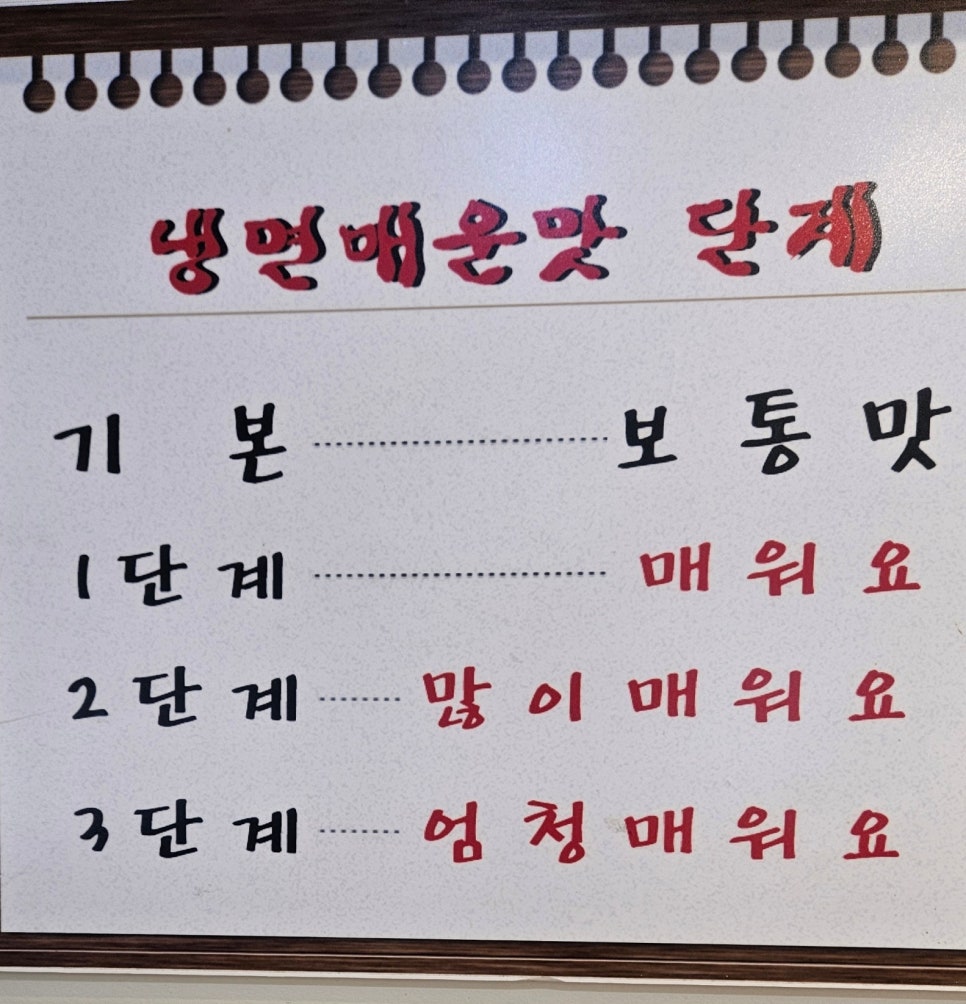 냉면매운맛 단계
기 본 ············ 보 통 맛
1 단 계 ············ 매 워 요
2 단 계 ······ 많 이 매 워 요
3 단 계 ······ 엄 청 매 워 요